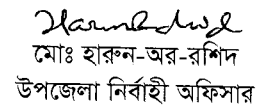 মোঃ হারুন-অর-রশিদ
উপজেলা নির্বাহী অফিসার